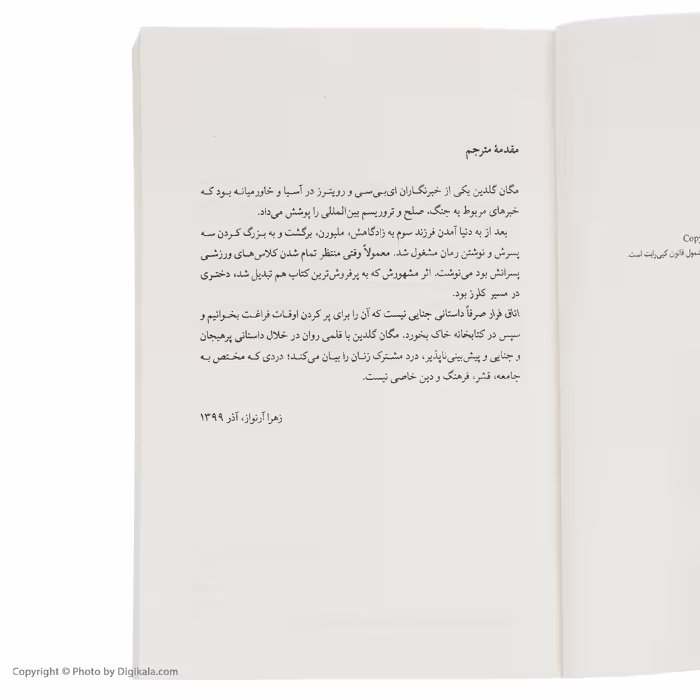 مقدمهٔ مترجم
مگان گلدین یکی از خبرنگاران ای‌بی‌سی و رویترز در آسیا و خاورمیانه بود که
خبرهای مربوط به جنگ، صلح و تروریسم بین‌المللی را پوشش می‌داد.
بعد از به دنیا آمدن فرزند سوم به زادگاهش، ملبورن، برگشت و به بزرگ کردن سه
پسرش و نوشتن رمان مشغول شد. معمولاً وقتی منتظر تمام شدن کلاس‌های ورزشی
پسرانش بود می‌نوشت. اثر مشهورش که به پرفروش‌ترین کتاب هم تبدیل شد، دختری
در مسیر کلرز بود.
اتاق فرار صرفاً داستانی جنایی نیست که آن را برای پر کردن اوقات فراغت بخوانیم و
سپس در کتابخانه خاک بخورد. مگان گلدین با قلمی روان در خلال داستانی پرهیجان
و جنایی و پیش‌بینی‌ناپذیر، درد مشترک زنان را بیان می‌کند؛ دردی که مختص به
جامعه، قشر، فرهنگ و دین خاصی نیست.
زهرا آرنواز، آذر ۱۳۹۹
Copy
شمول قانون کپی‌رایت است.
Copyright © Photo by Digikala.com